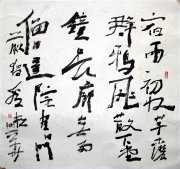 宿雨初收草木濃
群鴉飛散下堂
鐘長廊無事
僧歸院盡日門
前獨看松